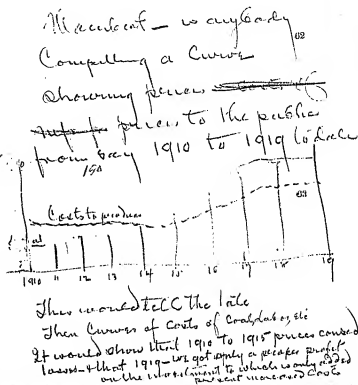 is anybody
62
Compelling a Curve
showing prices
prices to the public
from say 1910 to 1919 to date
150
Costs to produce
63
1910 11 12 13 14 15 16 17 18 19
This would tell the tale
Then Curves of Costs of Coal, labor, etc
It would show that 1910 to 1915 prices caused
losses & that 1919 we got only a proper profit
on the investment to which is only added
increased costs